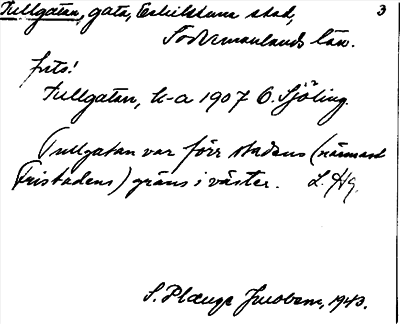 Tullgatan, gata, Eskilstuna stad, 3
Södermanlands län.
foto!
Tullgatan, k-a 1907 O. Sjöling.
Tullgatan var förr stadens (närmast
Fristadens) gräns i väster. L. Hg.
S. Plænge Jacobson, 1943.